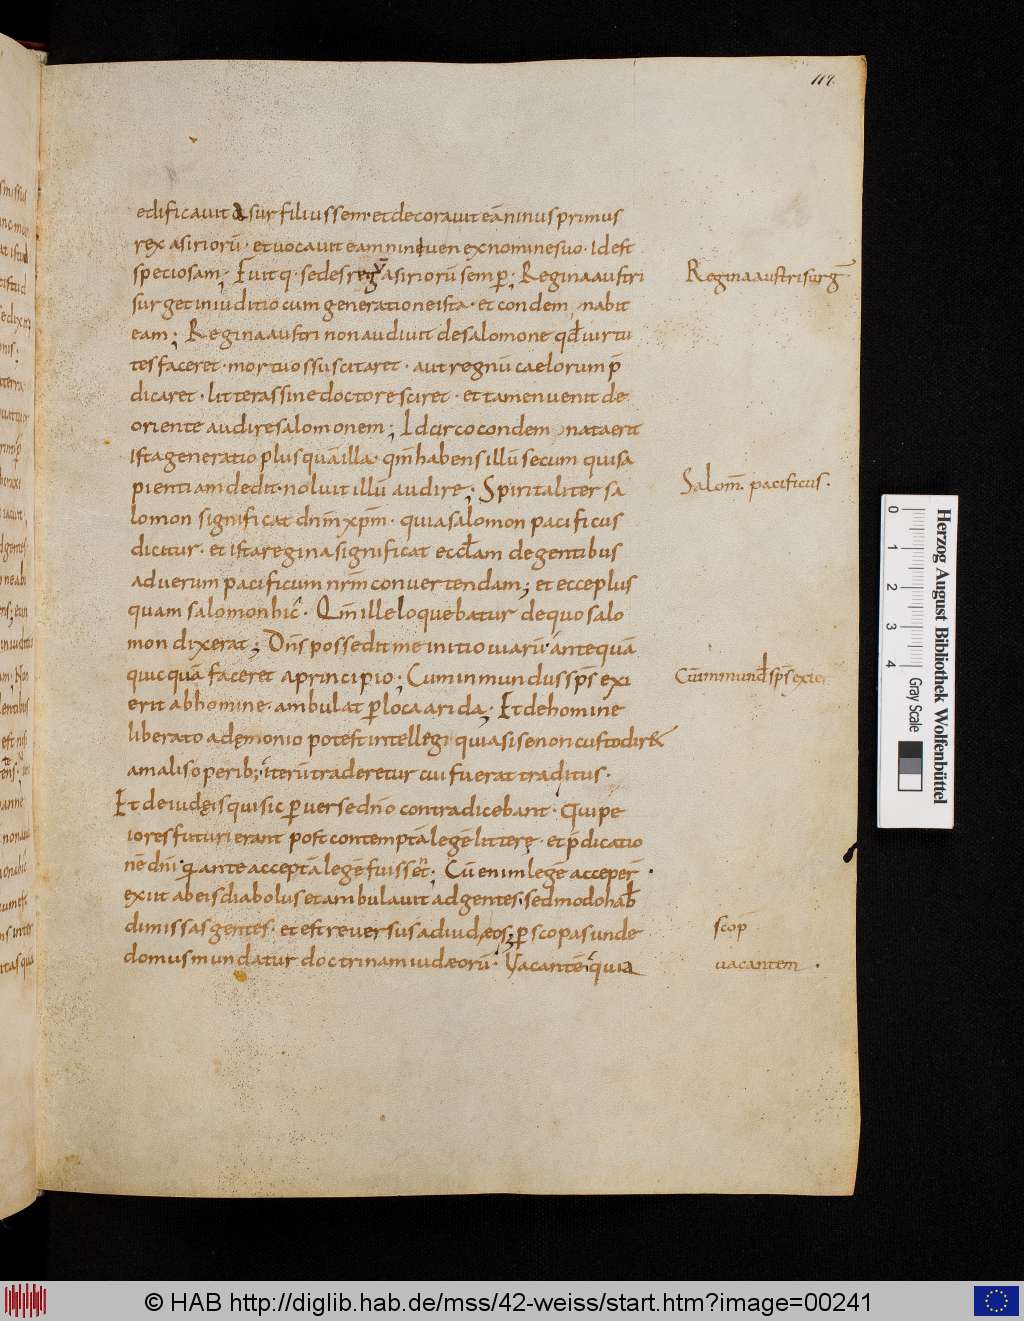 117.
edificauit assur filius sem· et decorauit eā ninus primus
rex asirioru᷑· et uocauit eam nineuen ex nomine suo· Id est
speciosam; Fuitq· sedes regū asirioru᷑ semp̄; Regina austri
surget in iuditio cum generatione ista· et condemnabit
eam; Regina austri non audiuit de salomone qđ uirtu
tes faceret· mortuos suscitaret· aut regnū caelorum p̄
dicaret· litteras sine doctore sciret· et tamen uenit de
oriente audire salomonem; Idcirco condemnata erit
ista generatio plus quā illa· qm̄ habens illū secum qui sa
pientiam dedit· noluit illū audire; Spiritaliter sa
lomon significat dnm̄ xpm̄· quia salomon pacificus
dicitur· et ista regina significat eccl̄am de gentibus
ad uerum pacificum nrm̄ conuertendam; et ecce plus
quam salomon hic· Qm̄ ille loquebatur de quo salo
mon dixerat; Dn̄s possedit me initio uiarū antequā
quicquā faceret a principio; Cum inmundus sps̄ exi
erit ab homine· ambulat p̱ loca arida; Et de homine
liberato a dęmonio potest intellegi quia si se non custodir&
a malis operib; iterū traderetur cui fuerat traditus·
Et de iudęis qui sic p̱uerse dn̄o contradicebant· Qui pe
iores futuri erant post contemptā legē litterę· et p̄dicatio
nē dnī qui ante acceptā legē fuissent; Cū enim legē acceper̄·
exiit ab eis diabolus et ambulauit ad gentes· sed modo hab̄
dimissas gentes· et est reuersus ad iudæos; p̱ scopas unde
domus mundatur doctrinam iudæorū· Vacantē quia
Regina austri surḡ
Salom̄· pacificus·
Cū inmund sps̄ exier
scop̄
uacantem·
0 1 2 3 4
Gray Scale
Herzog August Bibliothek Wolfenbüttel
© HAB http://diglib.hab.de/mss/42-weiss/start.htm?image=00241